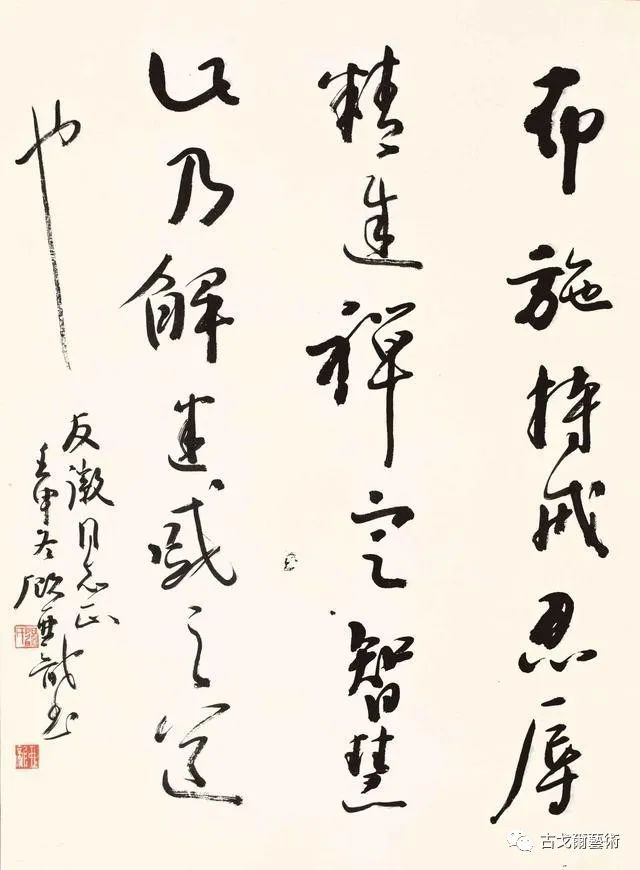 布施持戒忍辱
精進禪定智慧
此乃解迷惑之道
也
友 同志正
壬申冬顧亞龍書
古戈爾藝術